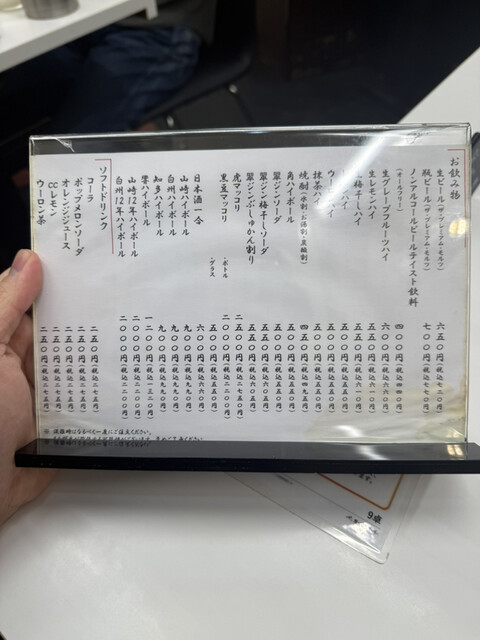 お飲み物
生ビール(ザ・プレミアム・モルツ) 六五〇円(税込七二〇円)
瓶ビール(ザ・プレミアム・モルツ) 七〇〇円(税込七七〇円)
ノンアルコールビールテイスト飲料
(オールフリー) 四〇〇円(税込四四〇円)
生グレープフルーツハイ 六〇〇円
生レモンハイ 五五〇円(税込六一〇円)
梅干しハイ 五五〇円(税込六一〇円)
ハイ 五〇〇円(税込五五〇円)
ハイ 五〇〇円(税込五五〇円)
抹茶ハイ 五〇〇円(税込五五〇円)
焼酎(水割・お湯割・炭酸割) 四五〇円(税込四九五円)
角ハイボール 五〇〇円(税込五五〇円)
翠ジンソーダ
翠ジン梅干しソーダ
翠ジンがぶしゅかん割り
虎マッコリ 二五〇〇円(税込二七五〇円)
黒豆マッコリ ・ボトル 二〇〇〇円(税込二二〇〇円)
・グラス 五〇〇円(税込五五〇円)
日本酒一合 六〇〇円(税込六六〇円)
山崎ハイボール 九〇〇円(税込九九〇円)
白州ハイボール 九〇〇円(税込九九〇円)
知多ハイボール 九〇〇円(税込九九〇円)
響ハイボール
山崎12年ハイボール 二〇〇〇円(税込二二〇〇円)
白州12年ハイボール 二〇〇〇円(税込二二〇〇円)
ソフトドリンク
コーラ 二五〇円(税込二七五円)
ポップメロンソーダ 二五〇円(税込二七五円)
オレンジジュース 二五〇円(税込二七五円)
CCレモン 二五〇円(税込二七五円)
ウーロン茶 二五〇円(税込二七五円)
9卓